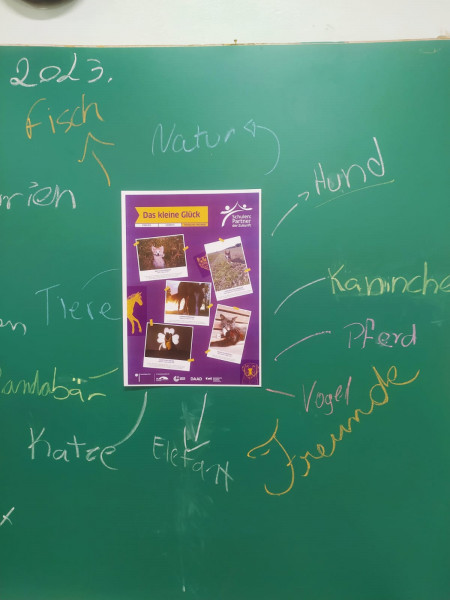 2023.
Fisch
Natur
Hund
rien
Das kleine Glück
Schulen:
Partner
der Zukunft
Tiere
Kaninche
en
Pferd
andabär
Vogel
DAAD
Freunde
Katze
Elefant